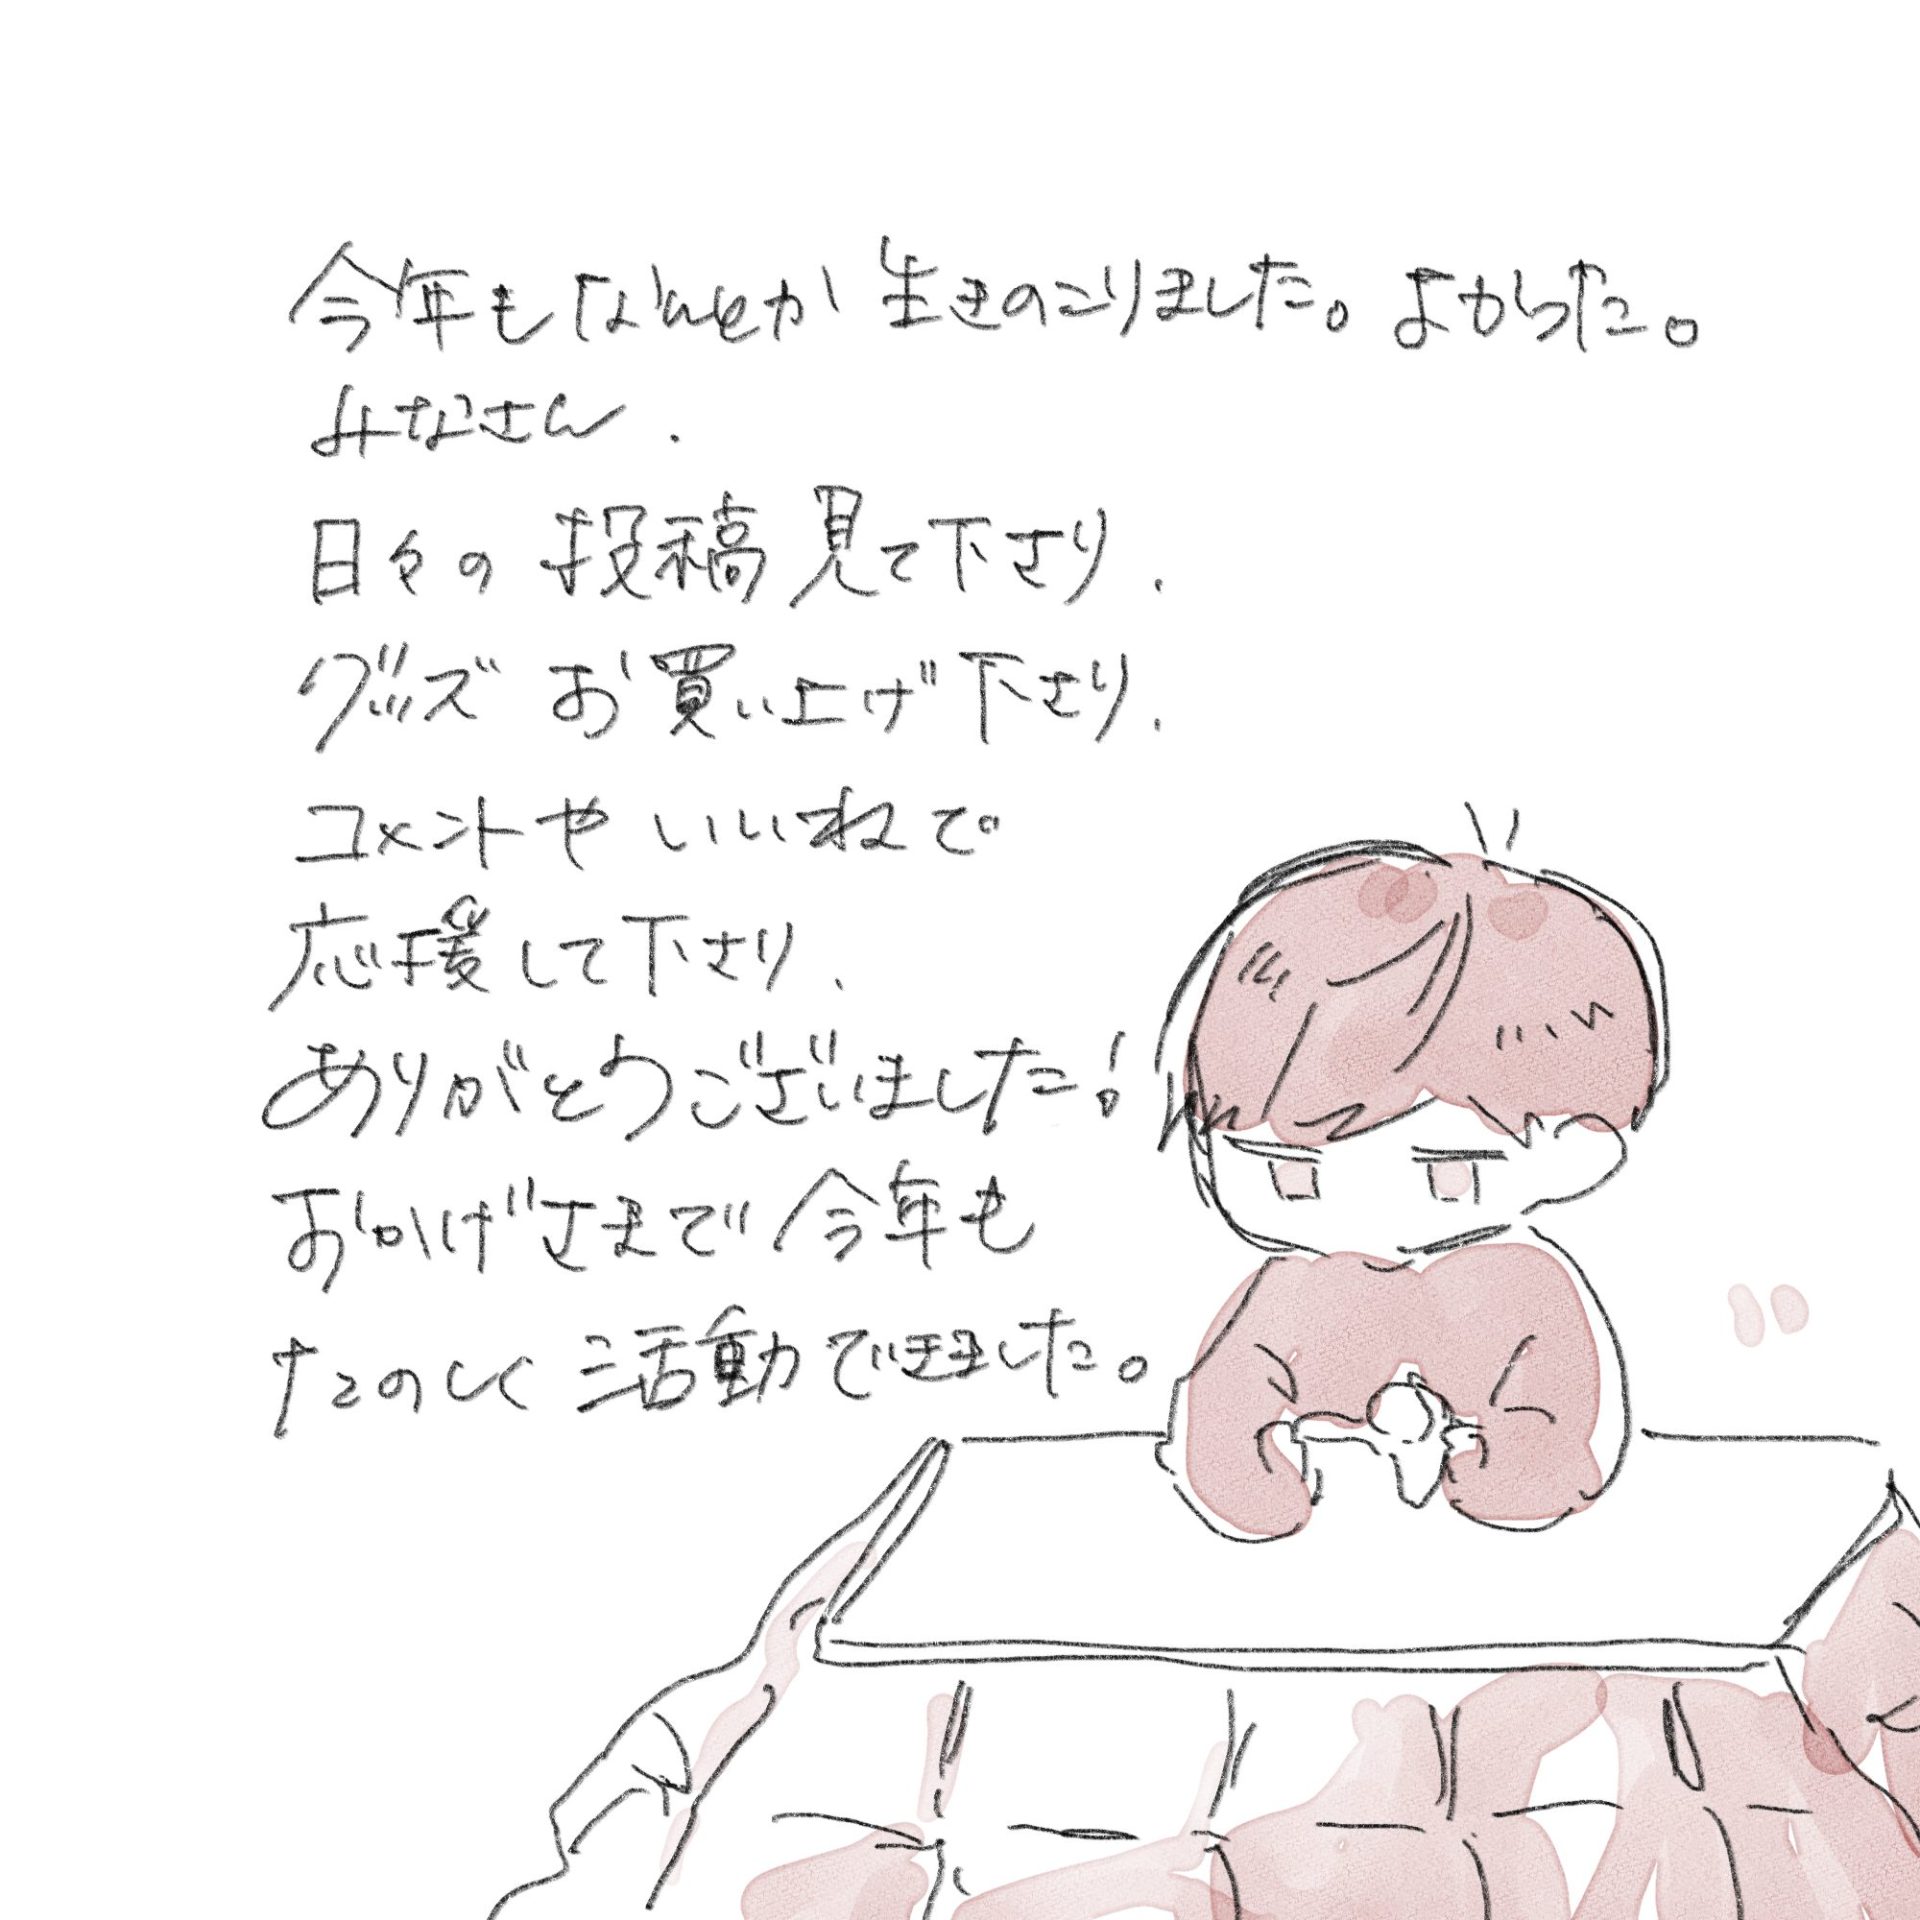 今年もなんとか生きのこりました。よかった。
みなさん、
日々の投稿見て下さり、
グッズお買い上げ下さり、
コメントやいいねで
応援して下さり、
ありがとうございました!
おかげさまで今年も
たのしく活動できました。